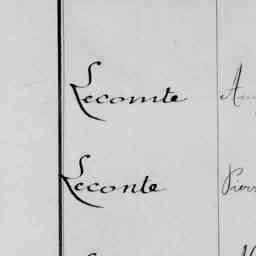 Lecomte
Leconte Pierr